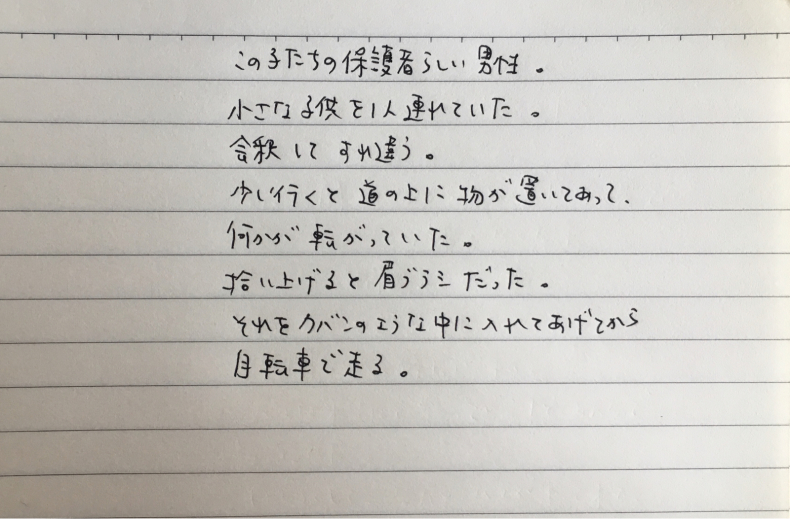 この子たちの保護者らしい男性。
小さな子供を1人連れていた。
会釈してすれ違う。
少し行くと道の上に物が置いてあって、
何かが転がっていた。
拾い上げると眉ブラシだった。
それをカバンのような中に入れてあげてから
自転車で走る。